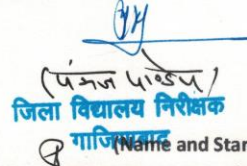 (पंकज पाण्डेय)
जिला विद्यालय निरीक्षक
गाजियाबाद
(Name and Star